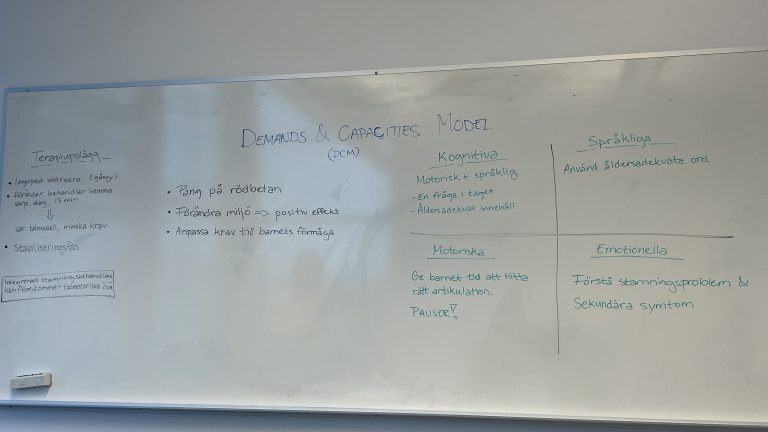 DEMANDS & CAPACITIES MODEL
(DCM)
Terapiupplägg
• logoped instruera, 1 gång/v
• förälder behandlar hemma
varje dag, 15 min
⇓
var talmodell, minska krav
• Stabiliseringsfas
Integrerad stamningsbehandling
kan förekomma talmotoriska
• Pang på rödbetan
• Förändra miljö => positiv effekt
• Anpassa krav till barnets förmåga
Kognitiva
Motorisk + språklig
- En fråga i taget
- Åldersadekvat innehåll
Språkliga
Använd åldersadekvata ord
Motoriska
Ge barnet tid att hitta
rätt artikulation.
PAUSER!
Emotionella
Förstå stamningsproblem &
Sekundära symtom